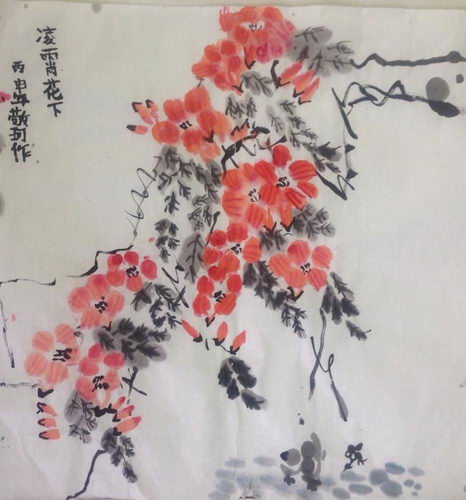 凌霄花下
丙申年敬珂作